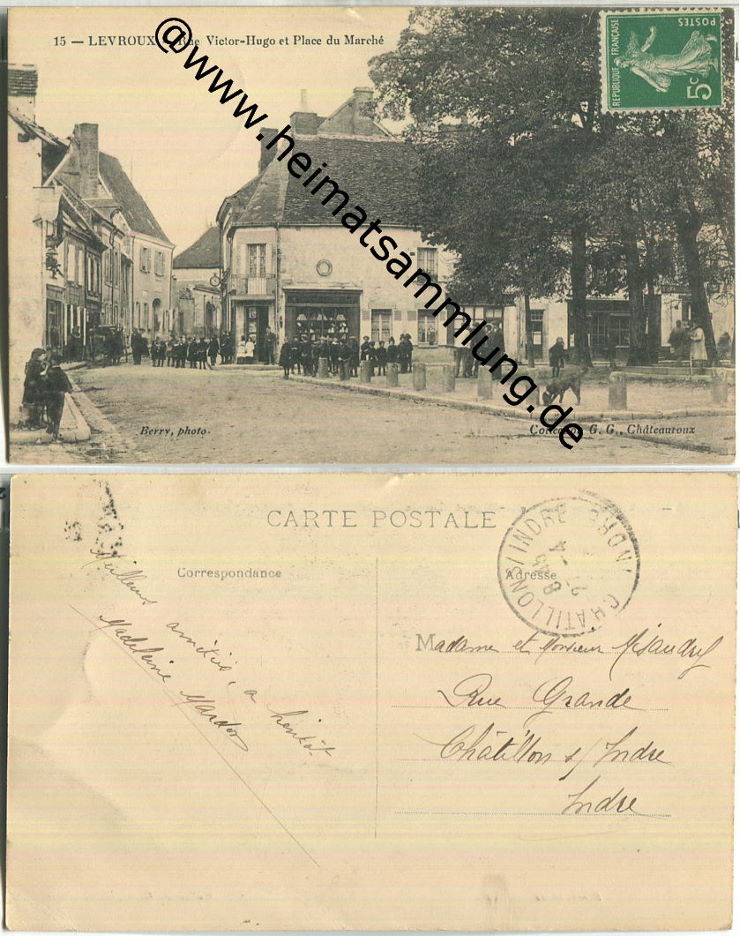 15 — LEVROUX - Rue Victor-Hugo et Place du Marché
RÉPUBLIQUE FRANÇAISE
POSTES
5c
@www.heimatsammlung.de
Berry, photo.
Collection G. G., Châteauroux
CARTE POSTALE
Correspondance
Adresse
CHATILLON S/ INDRE
Meilleurs amitiés, a bientôt
Madeleine
Madame et Monsieur
Rue Grande
Châtillon s/ Indre
Indre